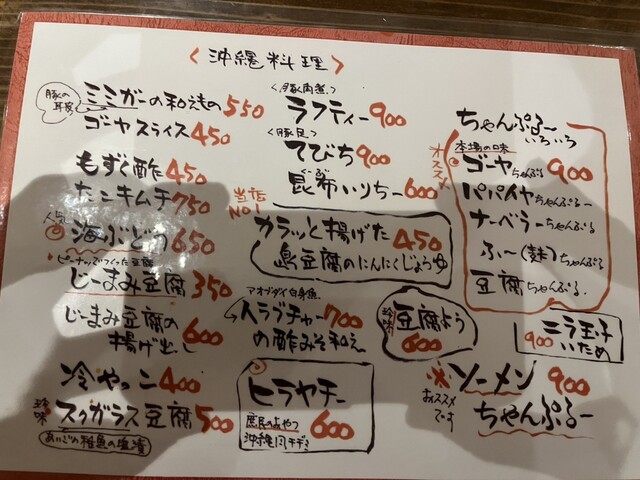 〈沖縄料理〉
豚の耳皮
ミミガーの和えもの 550
ゴーヤスライス 450
もずく酢 450
たこキムチ 750
人気
海ぶどう 650
ピーナッツでつくった豆腐
じーまみ豆腐 350
じーまみ豆腐の
揚げ出し 600
冷やっこ 400
珍味
スクガラス豆腐 500
あいごの稚魚の塩漬
〈豚肉煮〉
ラフティー 900
〈豚足〉
てびち 900
こぶ
昆布いりちー 600
当店
No.1
カラッと揚げた 450
島豆腐のにんにくじょうゆ
アオブダイ白身魚
イラブチャー 700
の酢みそ和え
珍味
豆腐よう
600
ヒラヤチー
庶民のおやつ
沖縄風チヂミ
600
ちゃんぷるー
いろいろ
本場の味
オススメ
ゴーヤちゃんぷる 900
パパイヤちゃんぷるー
ナーベラーちゃんぷる
ふー(麩)ちゃんぷる
豆腐ちゃんぷる
ニラ玉子
900 いため
※ソーメン 900
おススメ
です
ちゃんぷるー